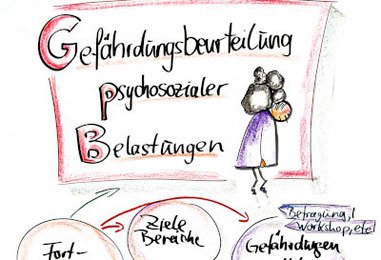 Gefährdungsbeurteilung
psychosozialer
Belastungen
Ziele
Bereiche
Befragung,
Workshop, etc
Fort-
Gefährdungen